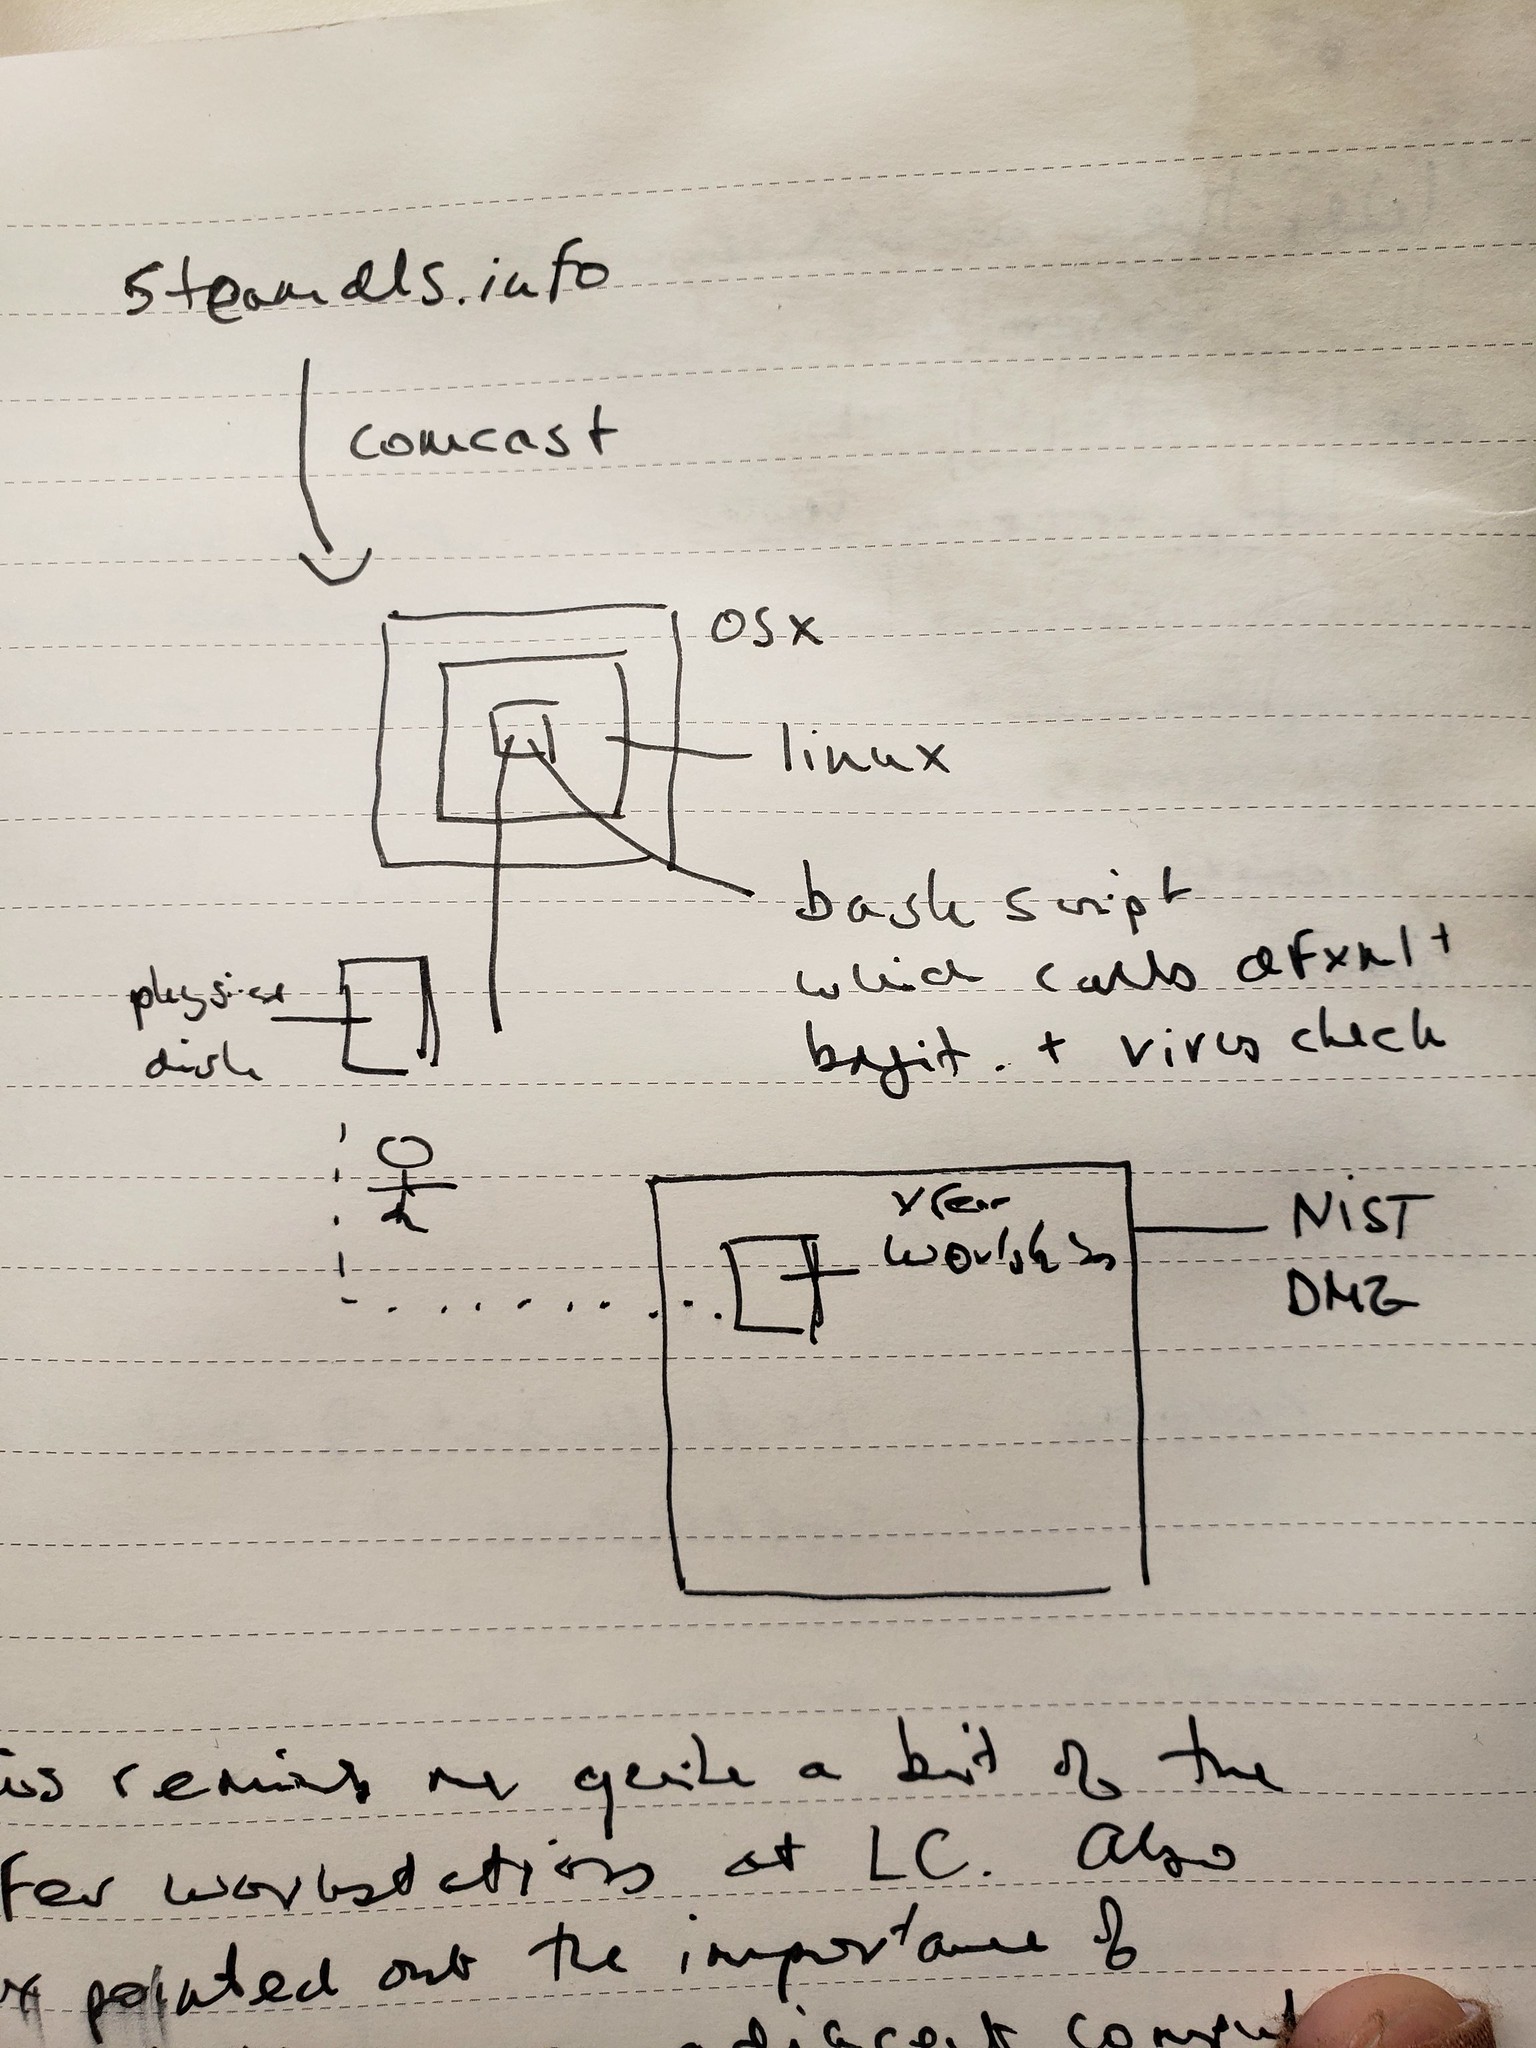 steamdls.info
comcast
OSX
linux
bash script
which calls dfxml +
bagit. + virus check
physical
disk
xfer
NIST
DMZ
is reminds me quite a bit of the
fer workstations at LC. Also
pointed out the importance of
adjacent comput